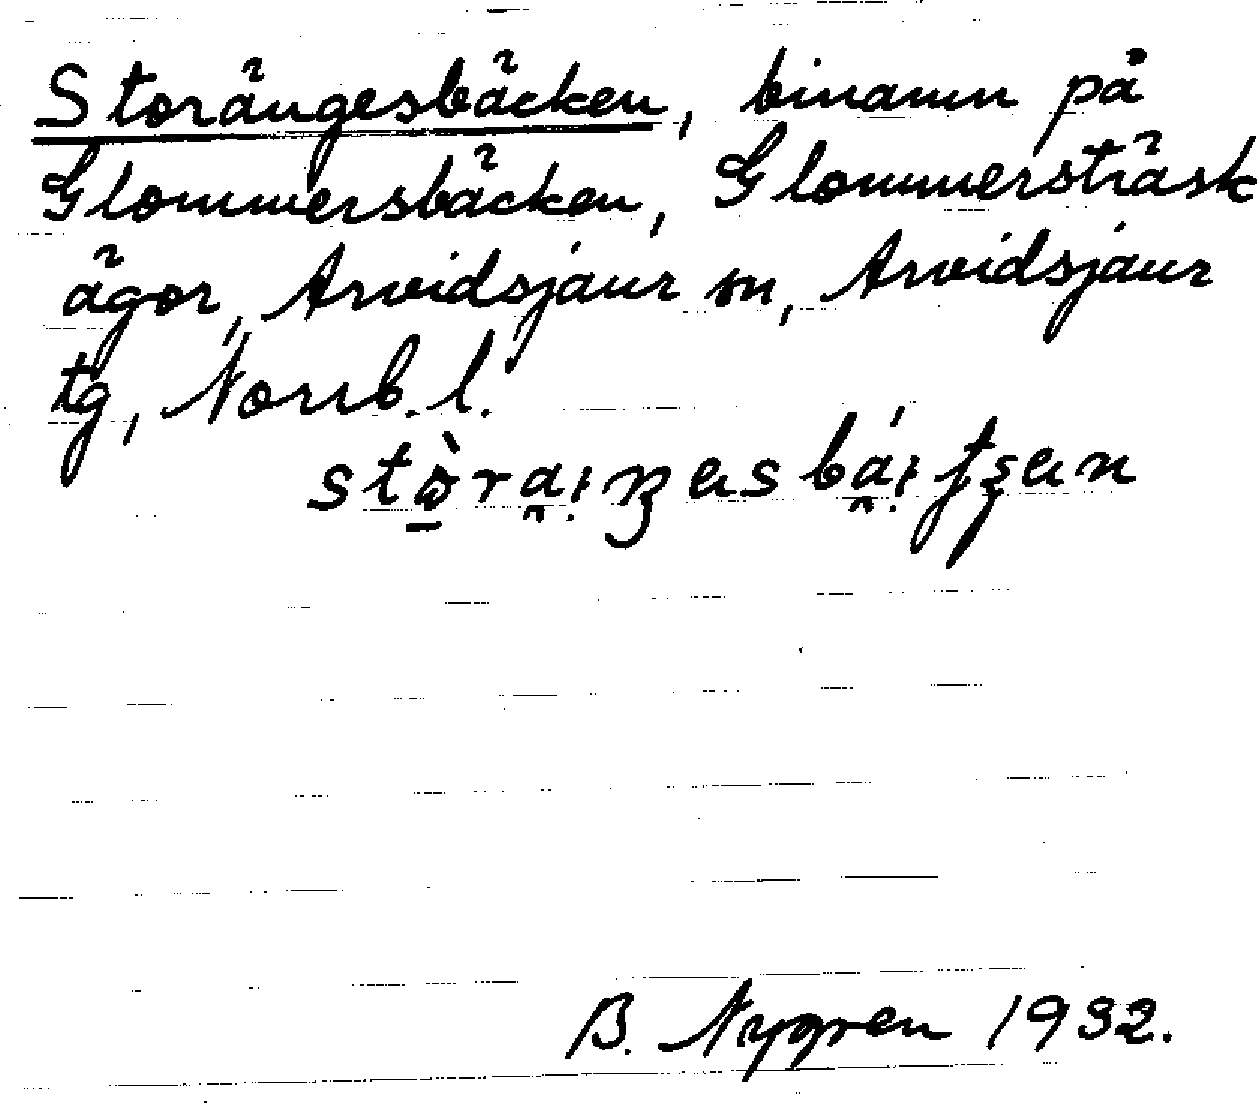 Storängesbäcken, binamn på
Glommersbäcken, Glommersträsk
ägor, Arvidsjaur sn, Arvidsjaur
tg, Norrb. l.
B. Nygren 1932.